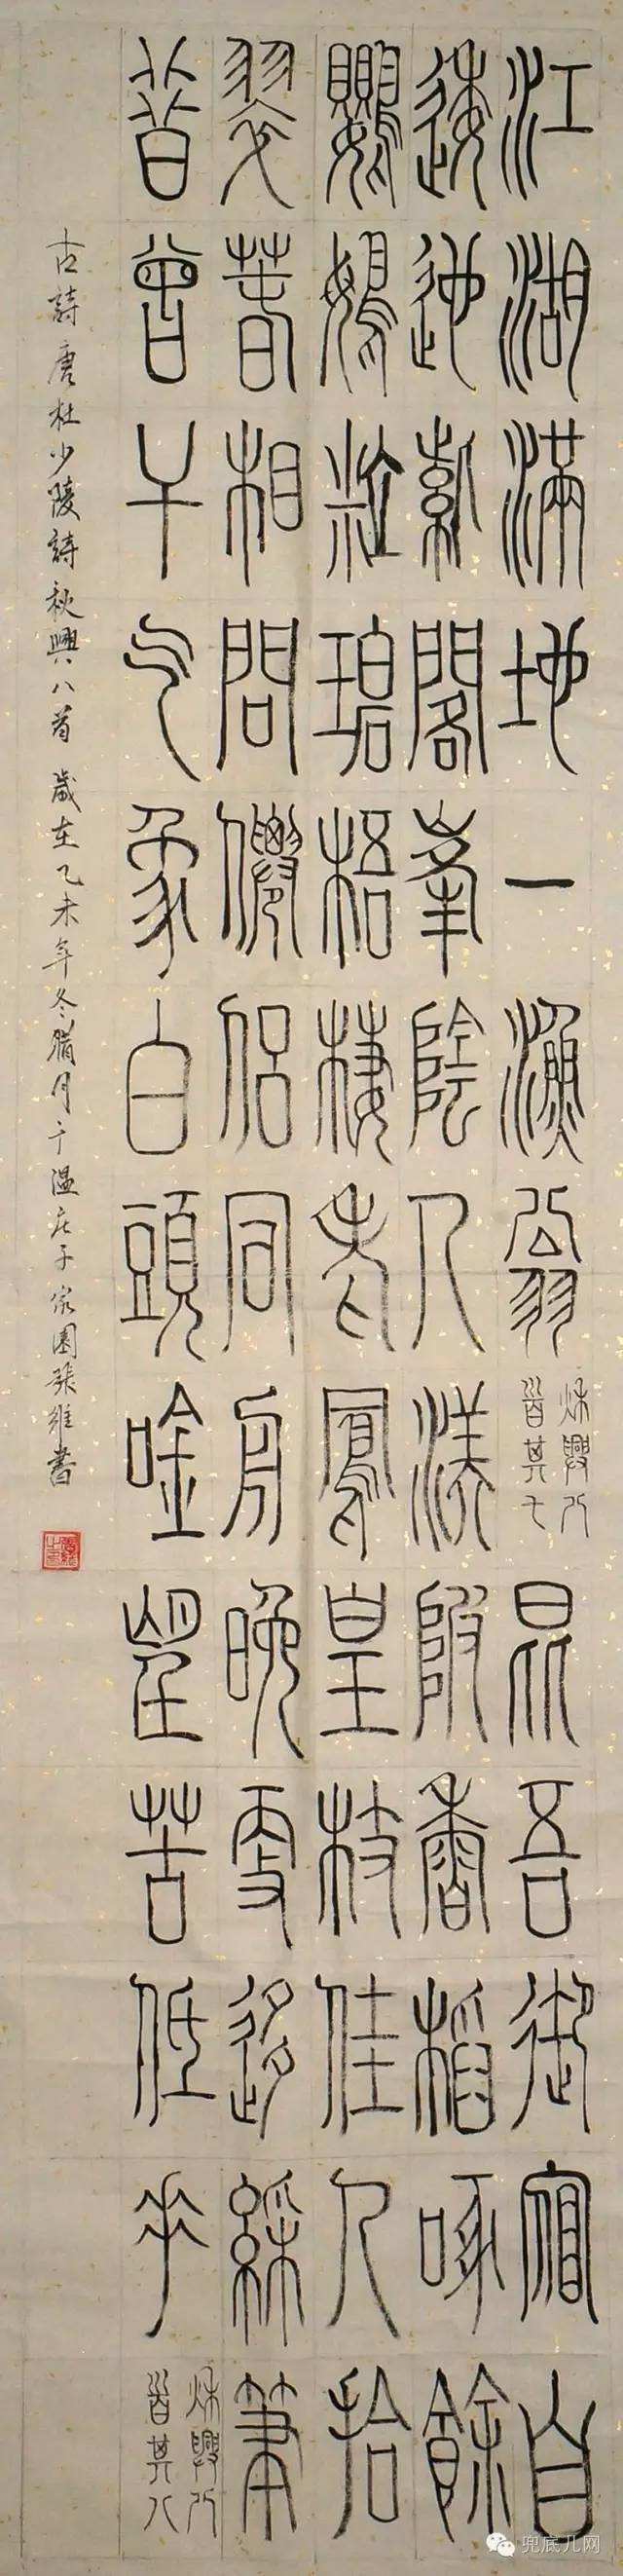 江湖滿地一漁翁
秌興八
首其七
昆吾御宿自
逶迤紫閣峯陰入渼陂香稻啄餘
鸚鵡粒碧梧棲老鳳皇枝佳人拾
翠春相問僊侶同舟晚更迻綵筆
昔曾干气象白頭唫望苦低垂
秌興八
首其八
古詩唐杜少陵詩秋興八首 歲在乙未年冬臘月于溫庄子家園張維書
兜底儿网